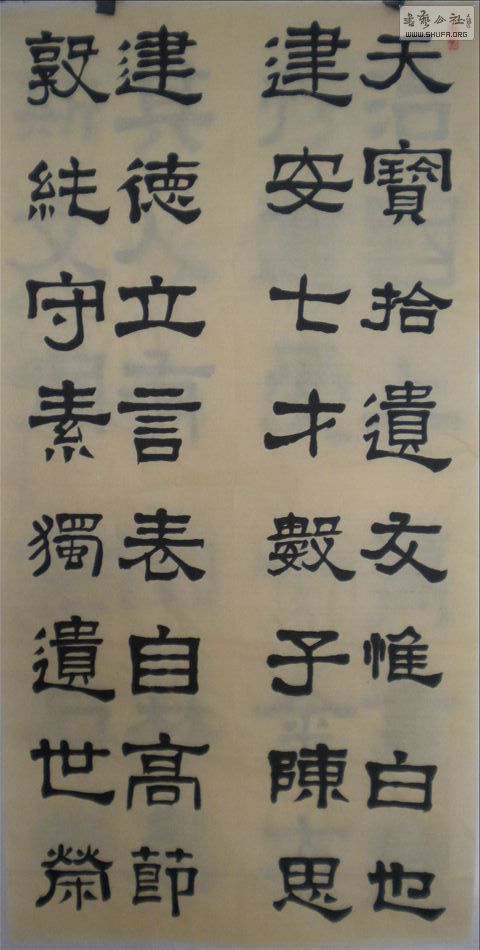 天寶拾遺友惟白也
建安七才數子陳思
建德立言表自高節
敦純守素獨遺世榮
書藝公社
WWW.SHUFA.ORG